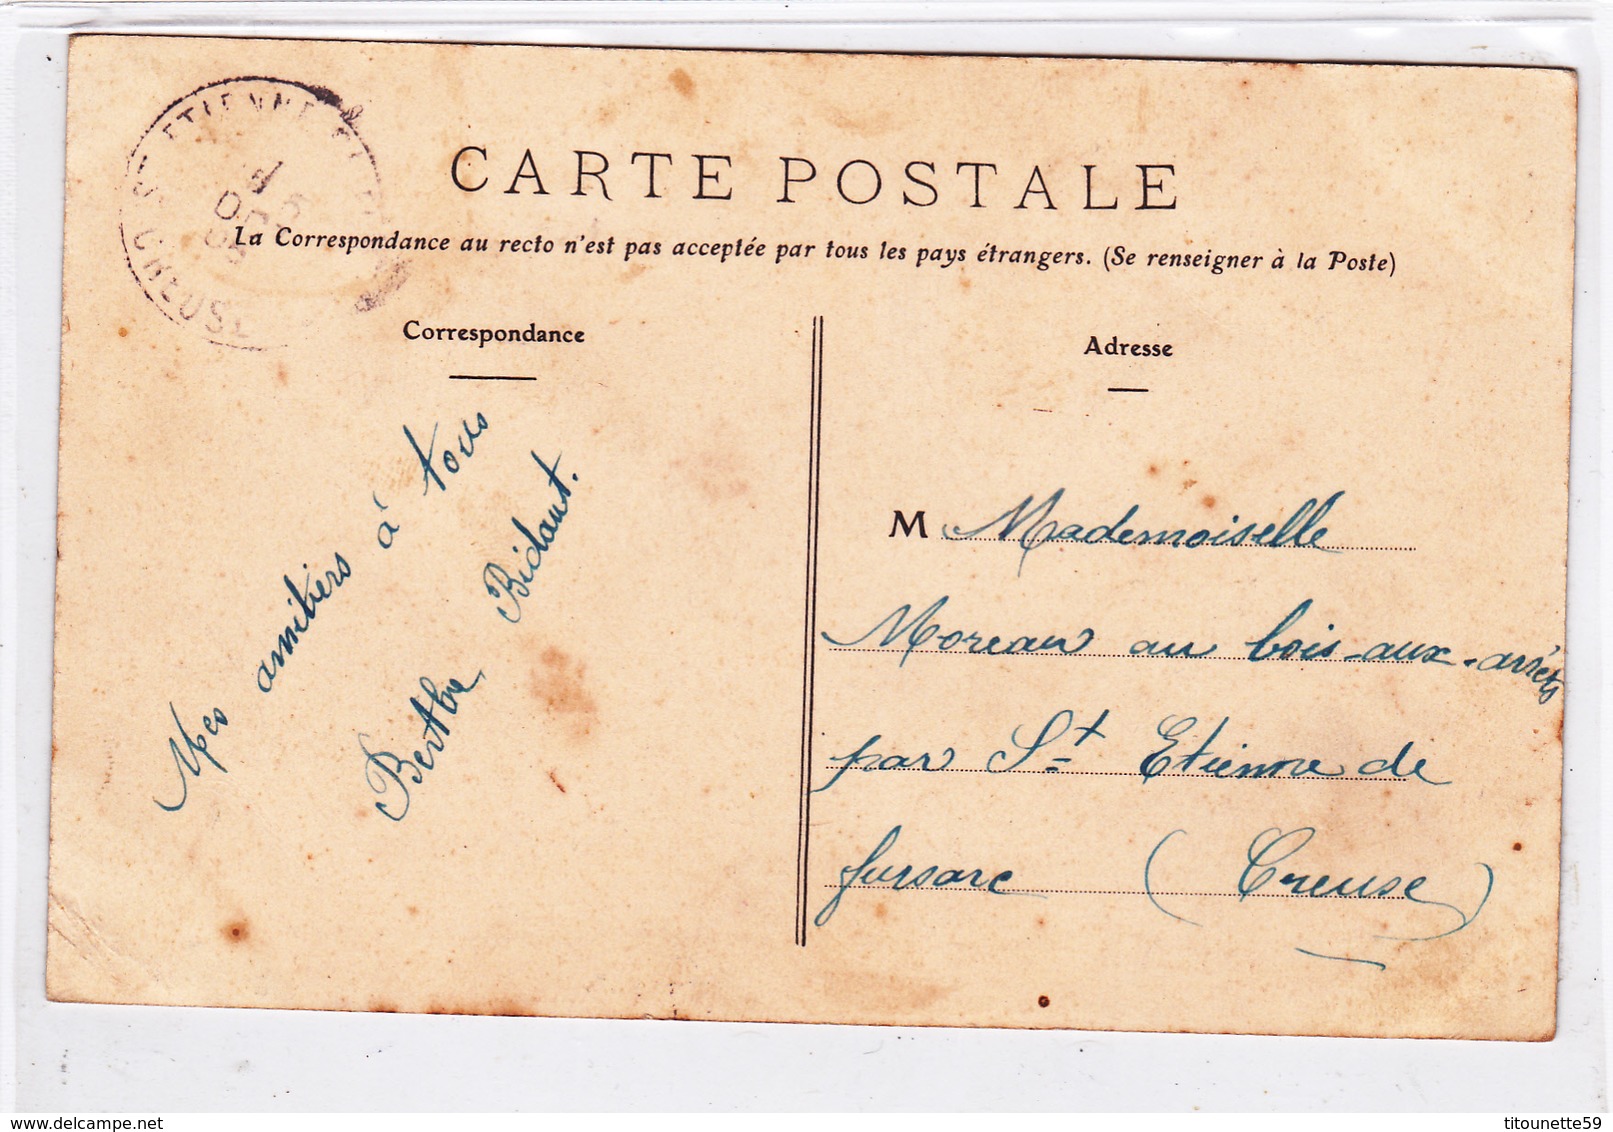 CARTE POSTALE
La Correspondance au recto n'est pas acceptée par tous les pays étrangers. (Se renseigner à la Poste)
Correspondance
Mes amitiers à tous
Berthe Bidaut.
Adresse
M Mademoiselle
Moreau au bois-aux-arrêts
par St Etienne de
fursarc (Creuse)
titounette59